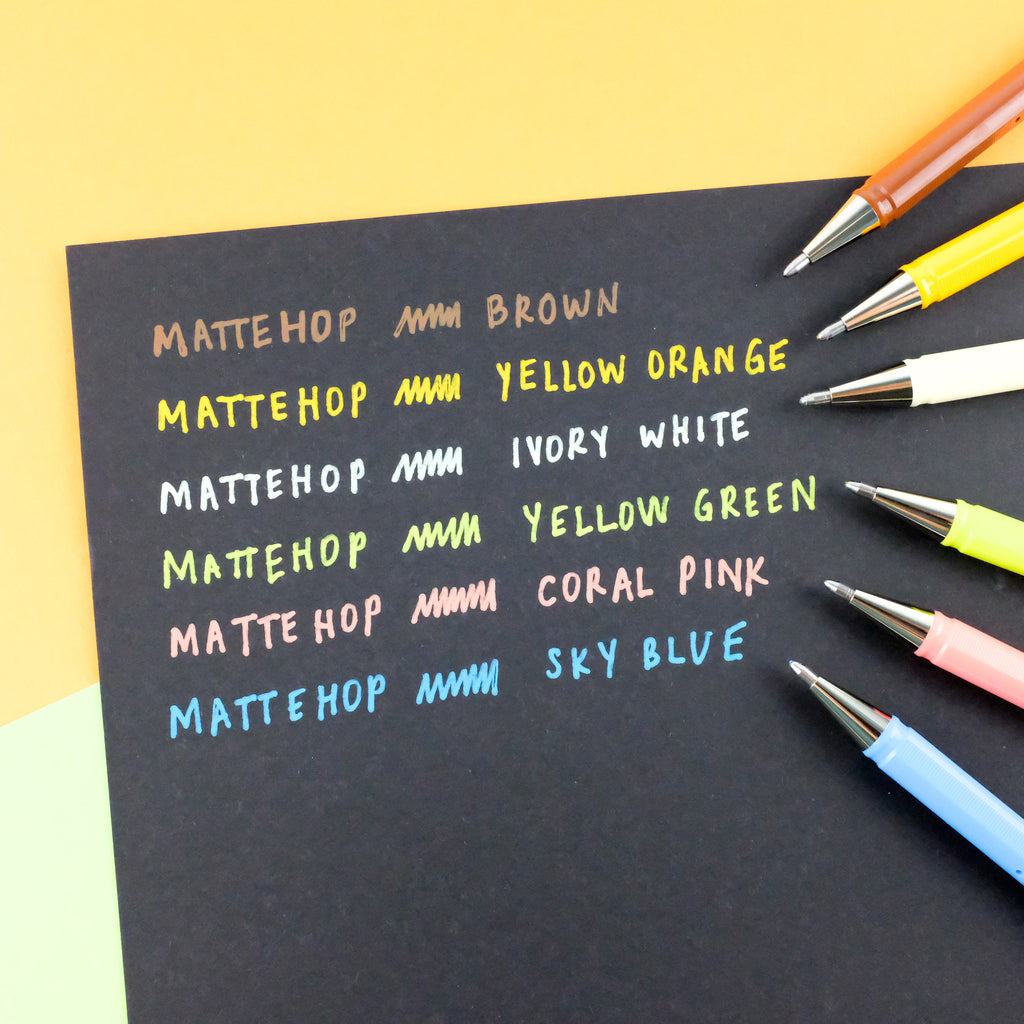 MATTEHOP BROWN
MATTEHOP YELLOW ORANGE
MATTEHOP IVORY WHITE
MATTEHOP YELLOW GREEN
MATTEHOP CORAL PINK
MATTEHOP SKY BLUE